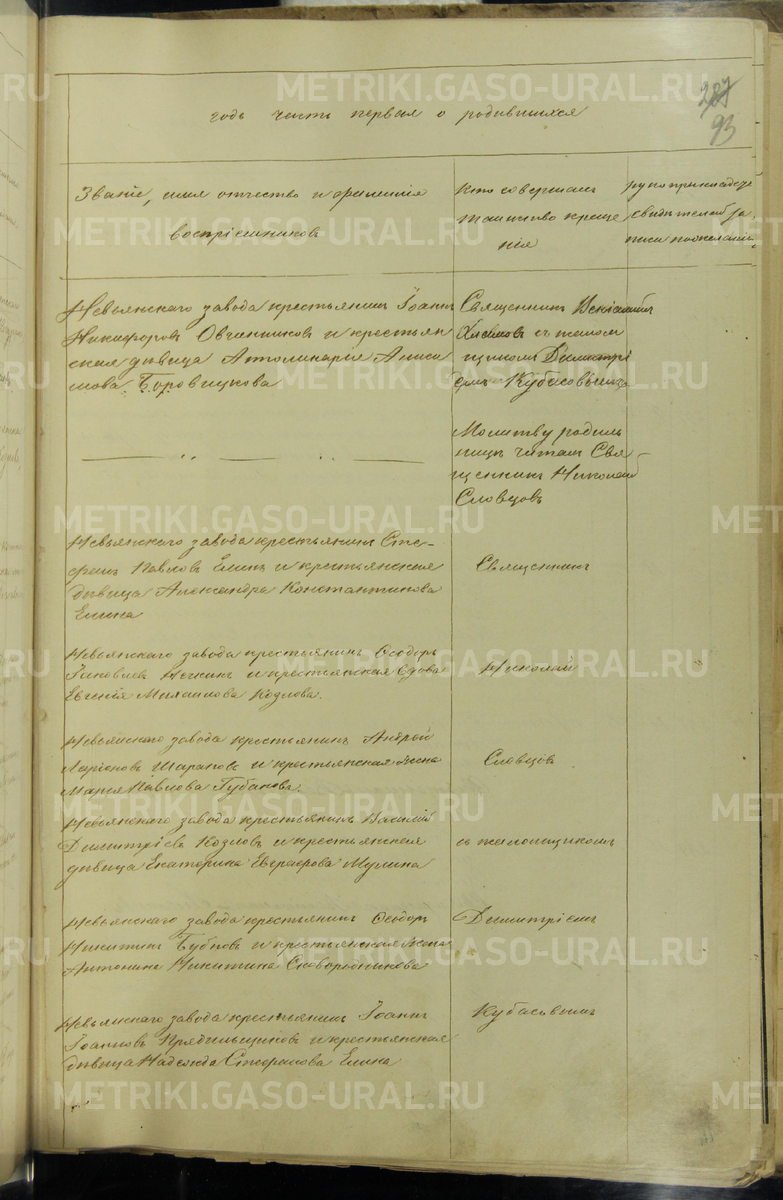 287
93
годъ часть первая о родившихся
Званіе, имя отчество и фамилія
воспріемниковъ
Кто совершалъ
таинство креще
нія
рукоприкладст
свидетелей за
писи по желанію
Невьянскаго завода крестьянинъ Іоаннъ
Никифоровъ Овчинниковъ и крестьян
ская дѣвица Апполинарія Аниси
мова Боровицкова
Священникъ Веніаминъ
съ псалом
щикомъ Димитрі
емъ Кубасовымъ
Молитву родиль
ницѣ читалъ Свя
щенникъ Николай
Словцовъ
Невьянскаго завода крестьянинъ Сте-
фанъ Павловъ Елинъ и крестьянская
дѣвица Александра Константинова
Елина
Священникъ
Невьянскаго завода крестьянинъ Ѳеодоръ
Іаковлевъ и крестьянская вдова
Евгенія Михаилова Козлова.
Николай
Невьянскаго завода крестьянинъ Андрей
Ларіоновъ Шараповъ и крестьянская жена
Марія Павлова Губанова.
Словцовъ
Невьянскаго завода крестьянинъ Василій
Димитріевъ Козловъ и крестьянская
дѣвица Екатерина Евграфова Мулина
съ псаломщикомъ
Невьянскаго завода крестьянинъ Ѳеодоръ
Никитинъ Бубновъ и крестьянская жена
Антонина Никитина Сковородникова
Димитріемъ
Невьянскаго завода крестьянинъ Іоаннъ
Іоанновъ Прядильщиковъ и крестьянская
дѣвица Надежда Стефанова Елина
Кубасовымъ
METRIKI.GASO-URAL.RU